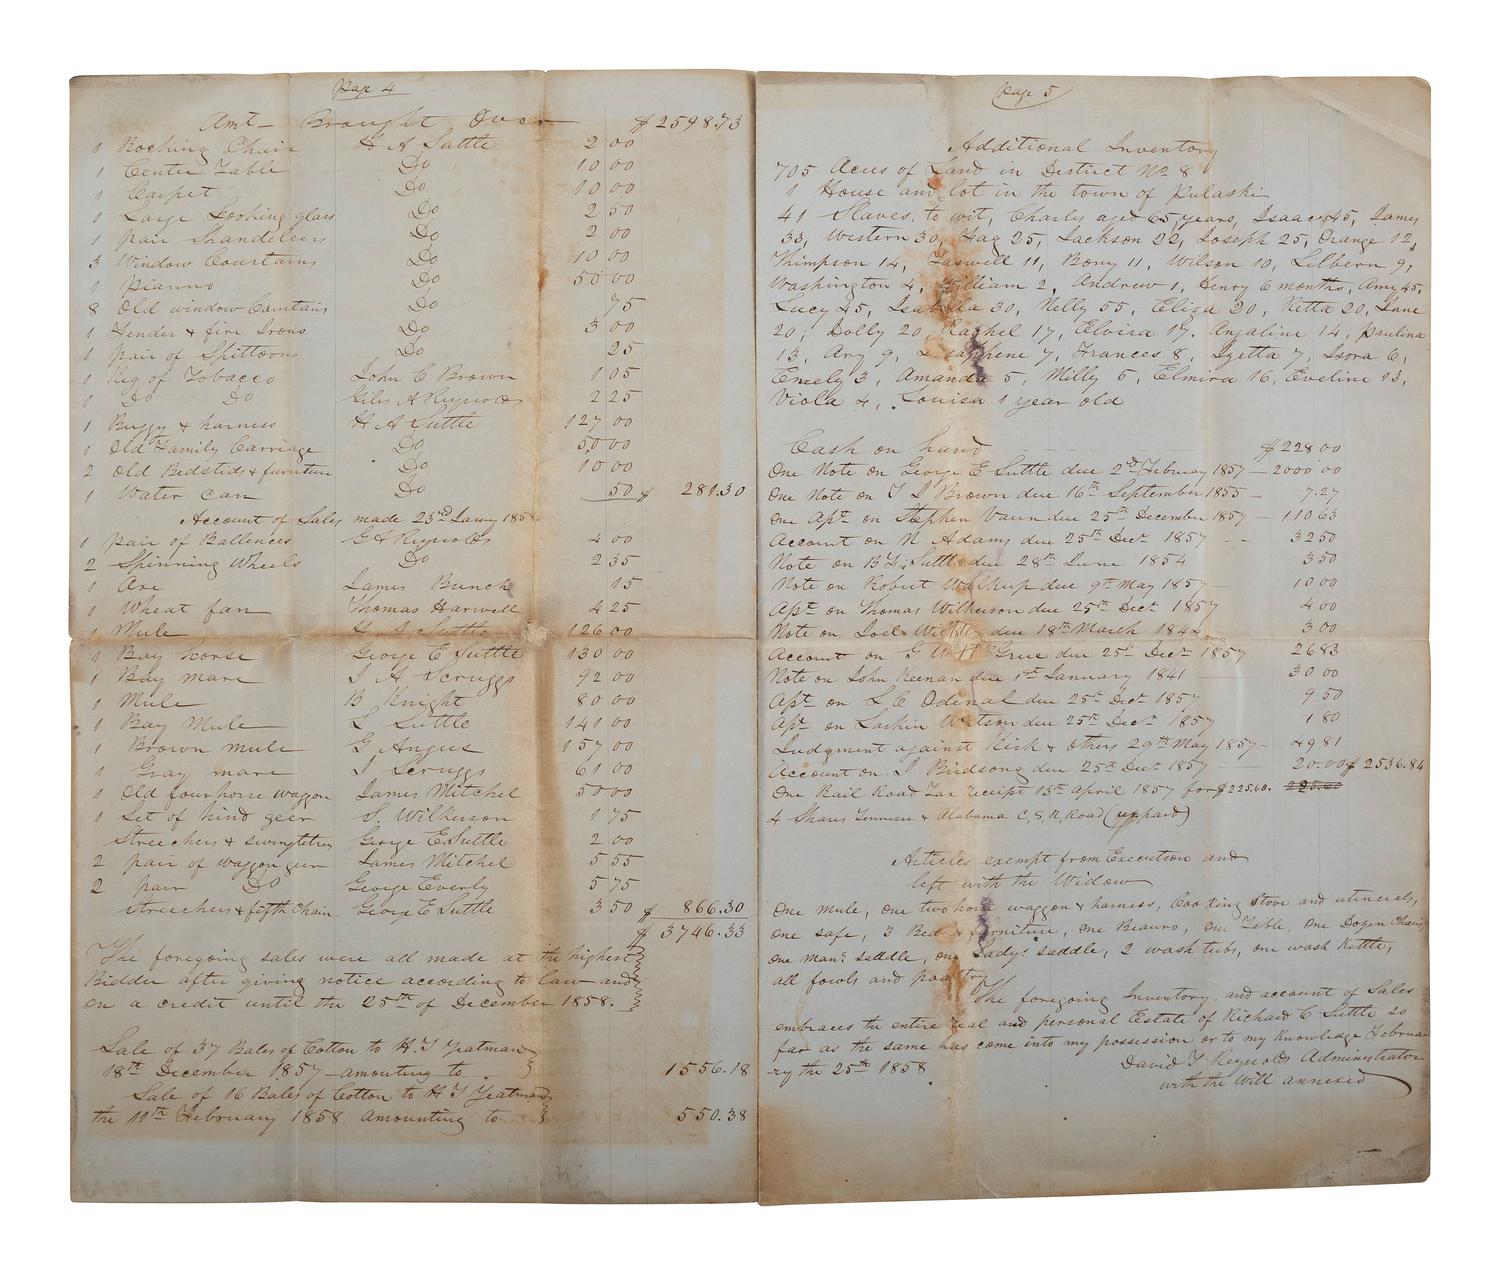 Page 4
Amt Brought Over $2598.73
1 Rocking Chair H A Suttle 2 00
1 Center Table Do 10 00
1 Carpet Do 10 00
1 Large Looking glass Do 2 50
1 pair Shandeleers Do 2 00
3 Window Courtains Do 10 00
1 pianno Do 50 00
8 Old window Courtains Do 75
1 Fender & fire Irons Do 3 00
1 pair of Spittoons Do 25
1 Keg of Tobacco John C Brown 1 05
1 Do Do Giles A Reynolds 2 25
1 Buggy & harness H A Suttle 127 00
1 Old Family Carriage Do 50 00
2 Old Bedstids & furniture Do 10 00
1 Water Can Do 50 $ 281.30
Account of Sales made 23rd Janry 1858.
1 pair of Ballences G A Reynolds 4 00
2 Spinning Wheels Do 2 35
1 Axe James Bunch 15
1 Wheat fan Thomas Harwell 4 25
1 Mule H A Suttle 126 00
1 Bay horse George E Suttle 130 00
1 Bay mare J A Scruggs 92 00
1 Mule B Knight 80 00
1 Bay Mule L Suttle 141 00
1 Brown mule G Angus 157 00
1 Gray mare J Scruggs 61 00
1 Old four horse waggon James Mitchel 50 00
1 Set of hind geer S. Wilkerson 1 75
Streachers & swingletrees George E. Suttle 2 00
2 pair of waggon geer James Mitchel 5 55
2 pair Do George Everly 5 75
Streechers & fifth Chain George E Suttle 3 50 $ 866.30
$ 3746.33
The foregoing sales were all made at the highest
Bidder after giving notice according to law and
on a credit until the 25th of December 1858.
Sale of 37 Bales of Cotton to H. T Yeatman
18th December 1857 amouting to 1556.18
Sale of 16 Bales of Cotton to H T Yeatman
the 11th February 1858 amounting to 550.38
Page 5
Additional Inventory
705 Acres of Land in District No 8
1 House and lot in the town of Pulaski
41 Slaves, to wit, Charles aged 65 years, Isaac 45, James
33, Western 30, Hag 25, Jackson 22, Joseph 25, Orange 12,
Thimpson 14, Taswell 11, Bony 11, Wilson 10, Lilbern 9,
Washington 4, William 2, Andrew 1, Henry 6 months, Amy 45,
Lucy 45, Isabella 30, Nelly 55, Eliza 20, Retta 20, Jane
20; Dolly 20 Rachel 17, Elvira 17. Anjaline 14, Paulina
13, Ary 9, 7, Frances 8, Izetta 7, Isora 6,
Emely 3, Amanda 5, Milly 5, Elmira 16, Eveline 13,
Viola 4, Louisa 1 year old
Cash on hand $ 228 00
One Note on George E Suttle due 2nd February 1857 — 2000 00
One Note on T J Brown due 16th September 1855 — 7.27
One Apt on Stephen Vaun due 25th December 1857 — 110 63
Account on N Adams due 25th Dect 1857 -- 32 50
Note on B F. Suttle due 28th June 1854 3 50
Note on Robert Walkup due 9th May 1857 10 00
Apt on Thomas Wilkerson due 25th Dect 1857 4 00
Note on Joel due 18th March 1844 3 00
Account on G W Grue due 25th Dect 1857 26 83
Note on John Keenan due 1st January 1841 30 00
Apt on L C Odenal due 25th Dect 1857 9 50
Apt on Larkin Watson due 25th Dect 1857 1 80
Judgment against Kirk & others 29th May 1857 — 49 81
Account on J Birdsong due 25th Dect 1857 20.00 $ 2536.84
One Rail Road Tax receipt 13th April 1857 for $225.60. 225.60
4 Shares Tennessee & Alabama C, S, R, Road (unpaid)
Articles exempt from Execution and
left with the Widow
One mule, one two horse waggon & harness, Cooking Stove and utincials,
One safe, 3 Bed & furniture, one Beauro, one Table, One Dozen Chairs
one mans saddle, one Ladys saddle, 2 wash tubs, one wash Kettle,
all fowls and poaltry
The foregoing Inventory, and account of Sales
embraces the entire real and personal Estate of Richard C Suttle so
far as the same has come into my possession or to my Knowledge Februa
-ry the 25th 1858
David T Reynolds Administrator
with the Will annexed